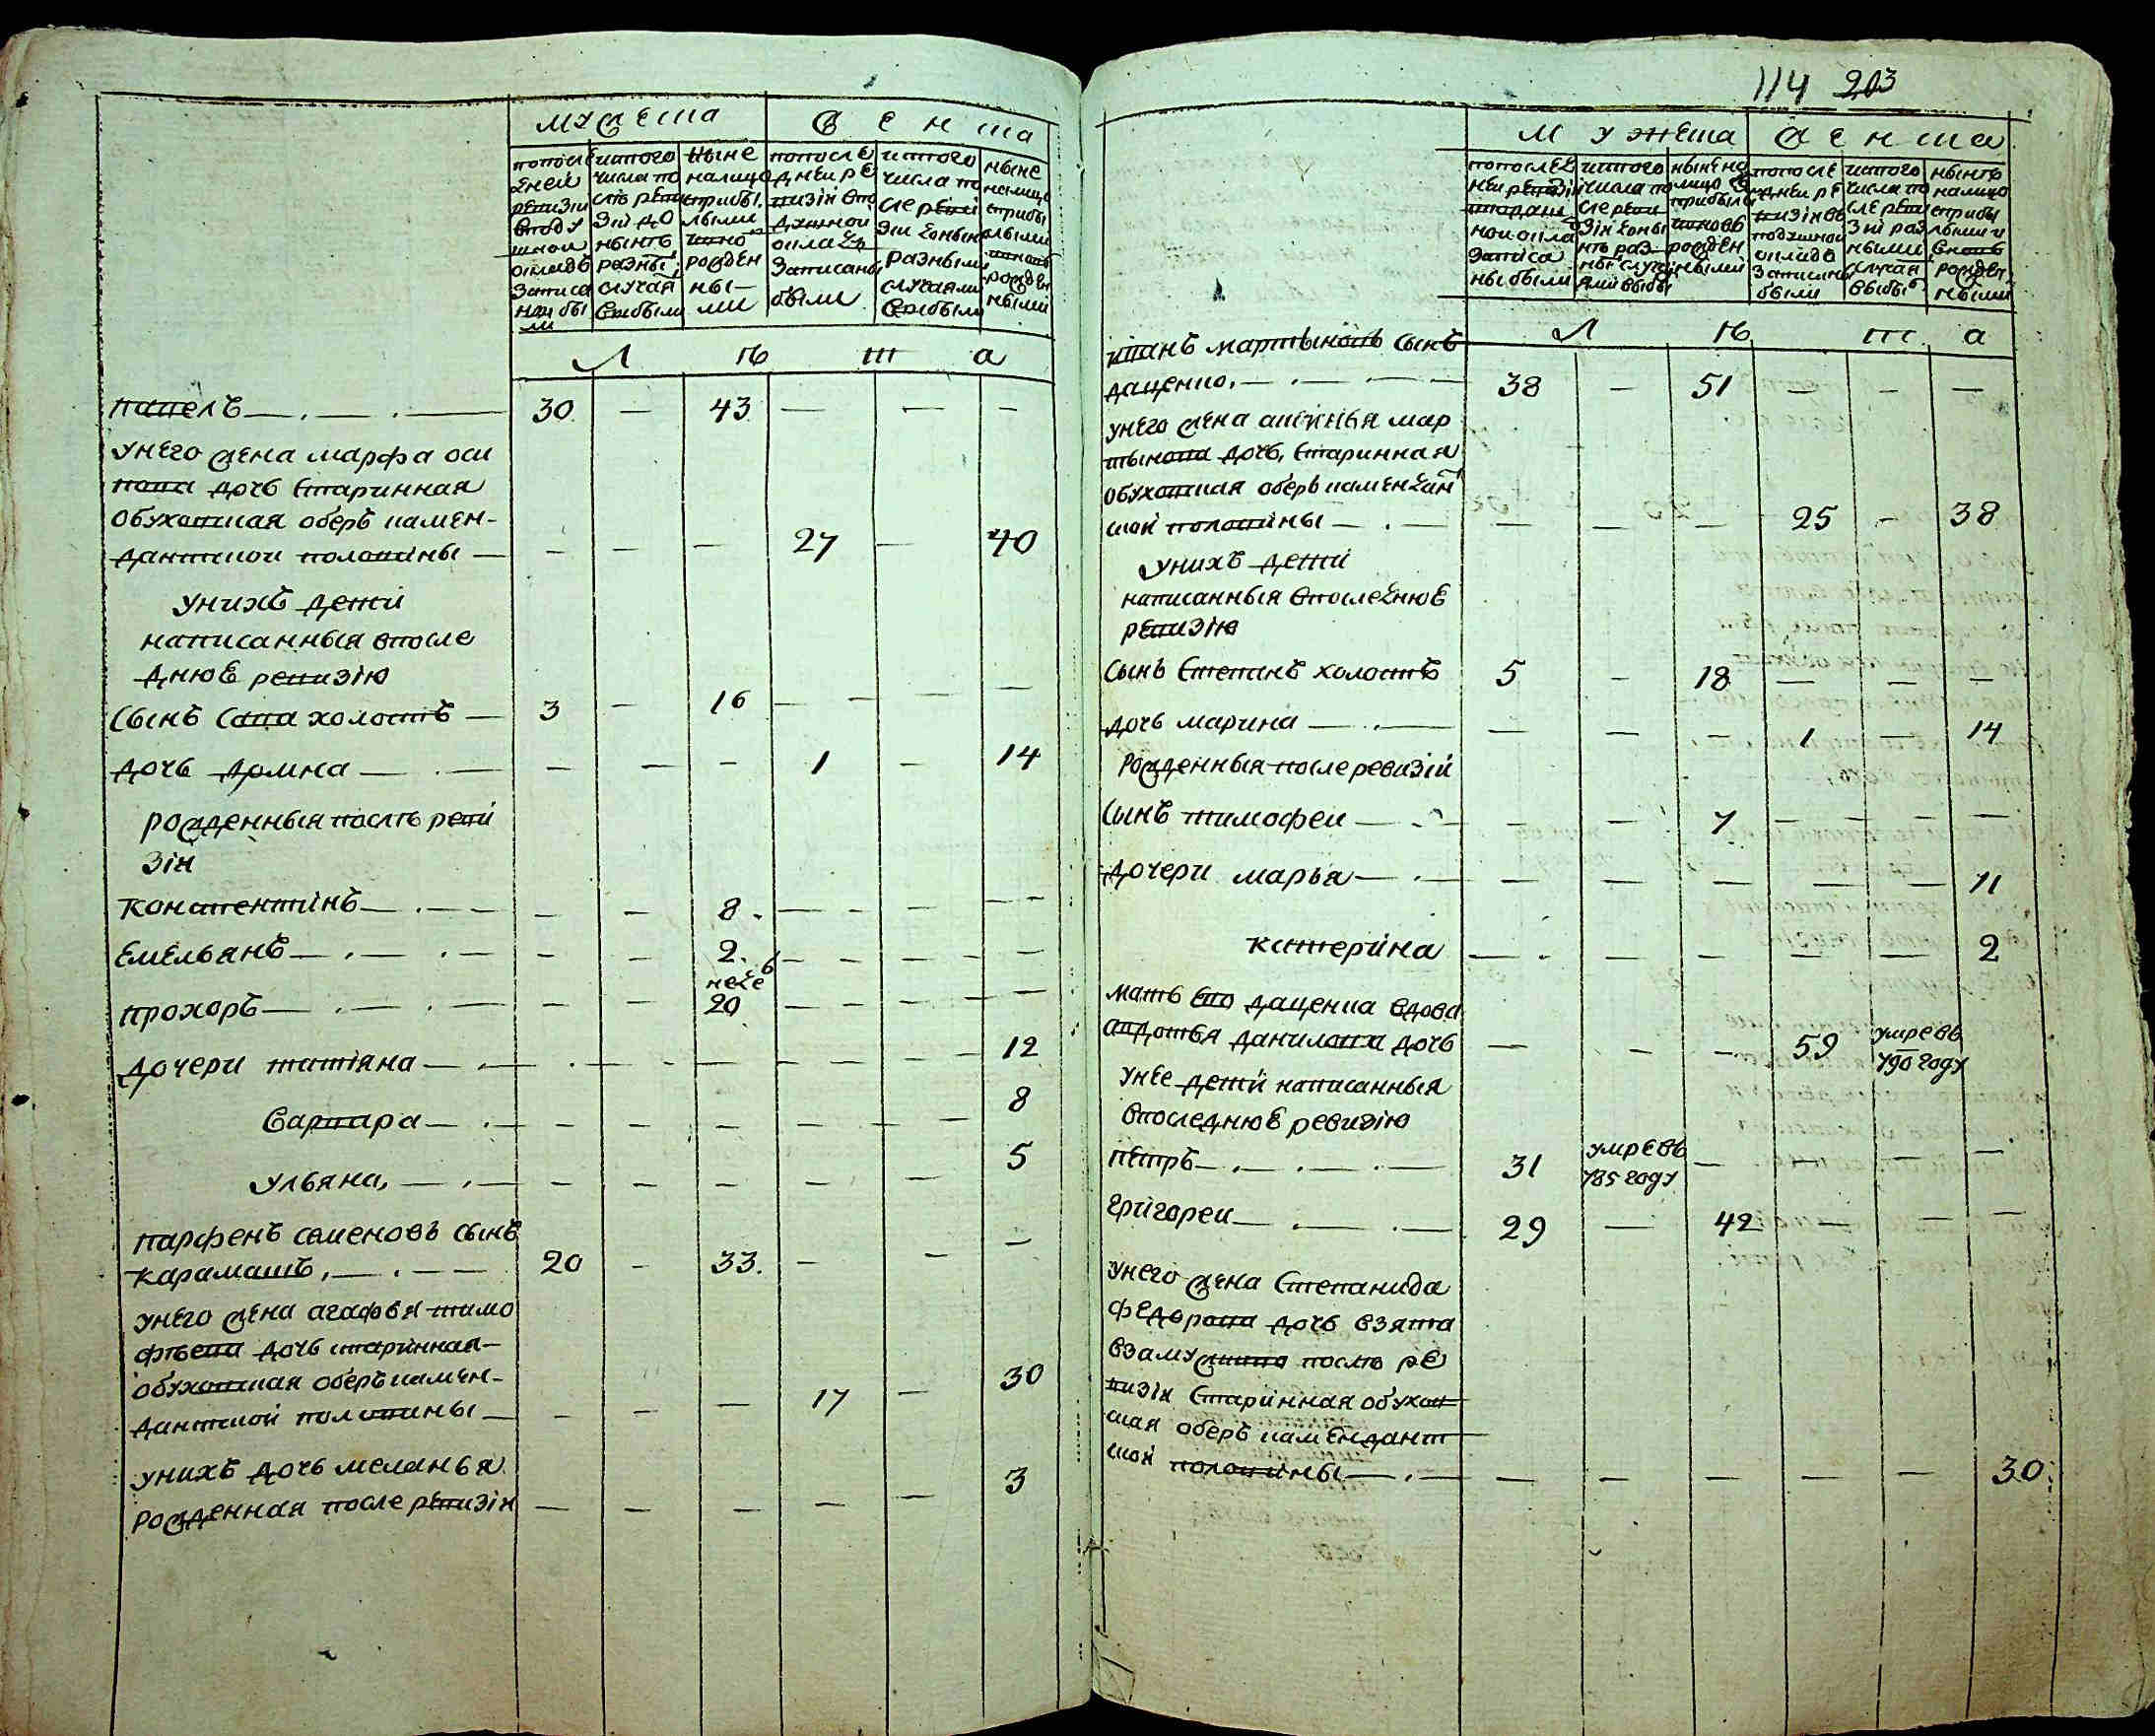 мужеска
женска
попосле
дней
ревизии
вподу
шной
окладъ
записа
ны бы
ли
истого
числа по
слѣ реви
зiи до
нынѣ
разны
случая
выбыли
ныне
налицо
сприбы
лыми
ивно
рожден
ны—
ми
попосле
дней ре
визiи впо
душной
окладъ
записаны
были
истого
числа по
сле реви
зiи доныне
разными
случаями
выбыли
ныне
налицо
сприбы
лыми
ивновь
рожден
ными
Л ѣ т а
павелъ — . — . — 30 — 43 — — —
унего жена марфа оси
пова дочь старинная
обуховская оберъ камен-
дантской половины — — — — 27 — 40
унихъ дети
написанныя впосле
днюю ревизiю
сынъ сава холостъ — 3 — 16 — — —
дочь домна — . — — — — 1 — 14
рожденныя послѣ реви
зiи
констентiнъ — . — — — — 8. — — —
емельянъ — . — . — — — 2. — — —
неде
прохоръ — . — . — — — 20 — — —
дочери татiяна — . — — — — — — 12
варвара — . — — — — — — 8
ульяна, — . — — — — — — 5
парфенъ семеновъ сынъ
карамашъ, — . — — 20 — 33. — — —
унего жена агафья тимо
фѣева дочь старинная —
обуховская оберъ камен-
дантской половины — — — — 17 — 30
унихъ дочь меланья
рожденная после ревизiи — — — — — 3
114 203
мужеска
женска
попослед
ней ревизiи
вподуш
ной окла
записа
ны были
истого
числа по
сле реви
зiи доны
нѣ раз
ны случа
ями выбы
ныне на
лицо с
прибылы
ивновь
рожден
ными
попосле
дней ре
визiи въ
подушной
окладъ
записаны
были
истого
числа по
сле реви
зiи раз
ными
случая
выбы
нынѣ
налицо
сприбы
лыми и
вновь
рожден
ными
Л ѣ т а
иванъ мартыновъ сынъ
даценко, — . — . — — 38 — 51 — — —
унего жена аксинья мар
тынова дочь, старинная
обуховская оберъ каменданt
ской половины — . — — — — 25 — 38
унихъ дети
написанныя впоследнюю
ревизiю
сынъ степанъ холостъ 5 — 18 — — —
дочь марина — . — — — — 1 — 14
рожденныя после ревизiй
сынъ тимофеи — . — — — 7 — — —
дочери марья — . — — — — — — 11
катерина — . — — — — — 2
мать ево даценка вдова
авдотья данилова дочь — — — 59 умре въ
790 году
унее дети написанныя
впоследнюю ревизiю
петръ — . — . — . — 31 умре въ
785 году — — — —
григореи — . — . — 29 — 42 — — —
унего жена степанида
федорова дочь взята
взамужство послѣ ре
визiи старинная обухов
ская оберъ камендант
ской половины — . — — — — — — 30.